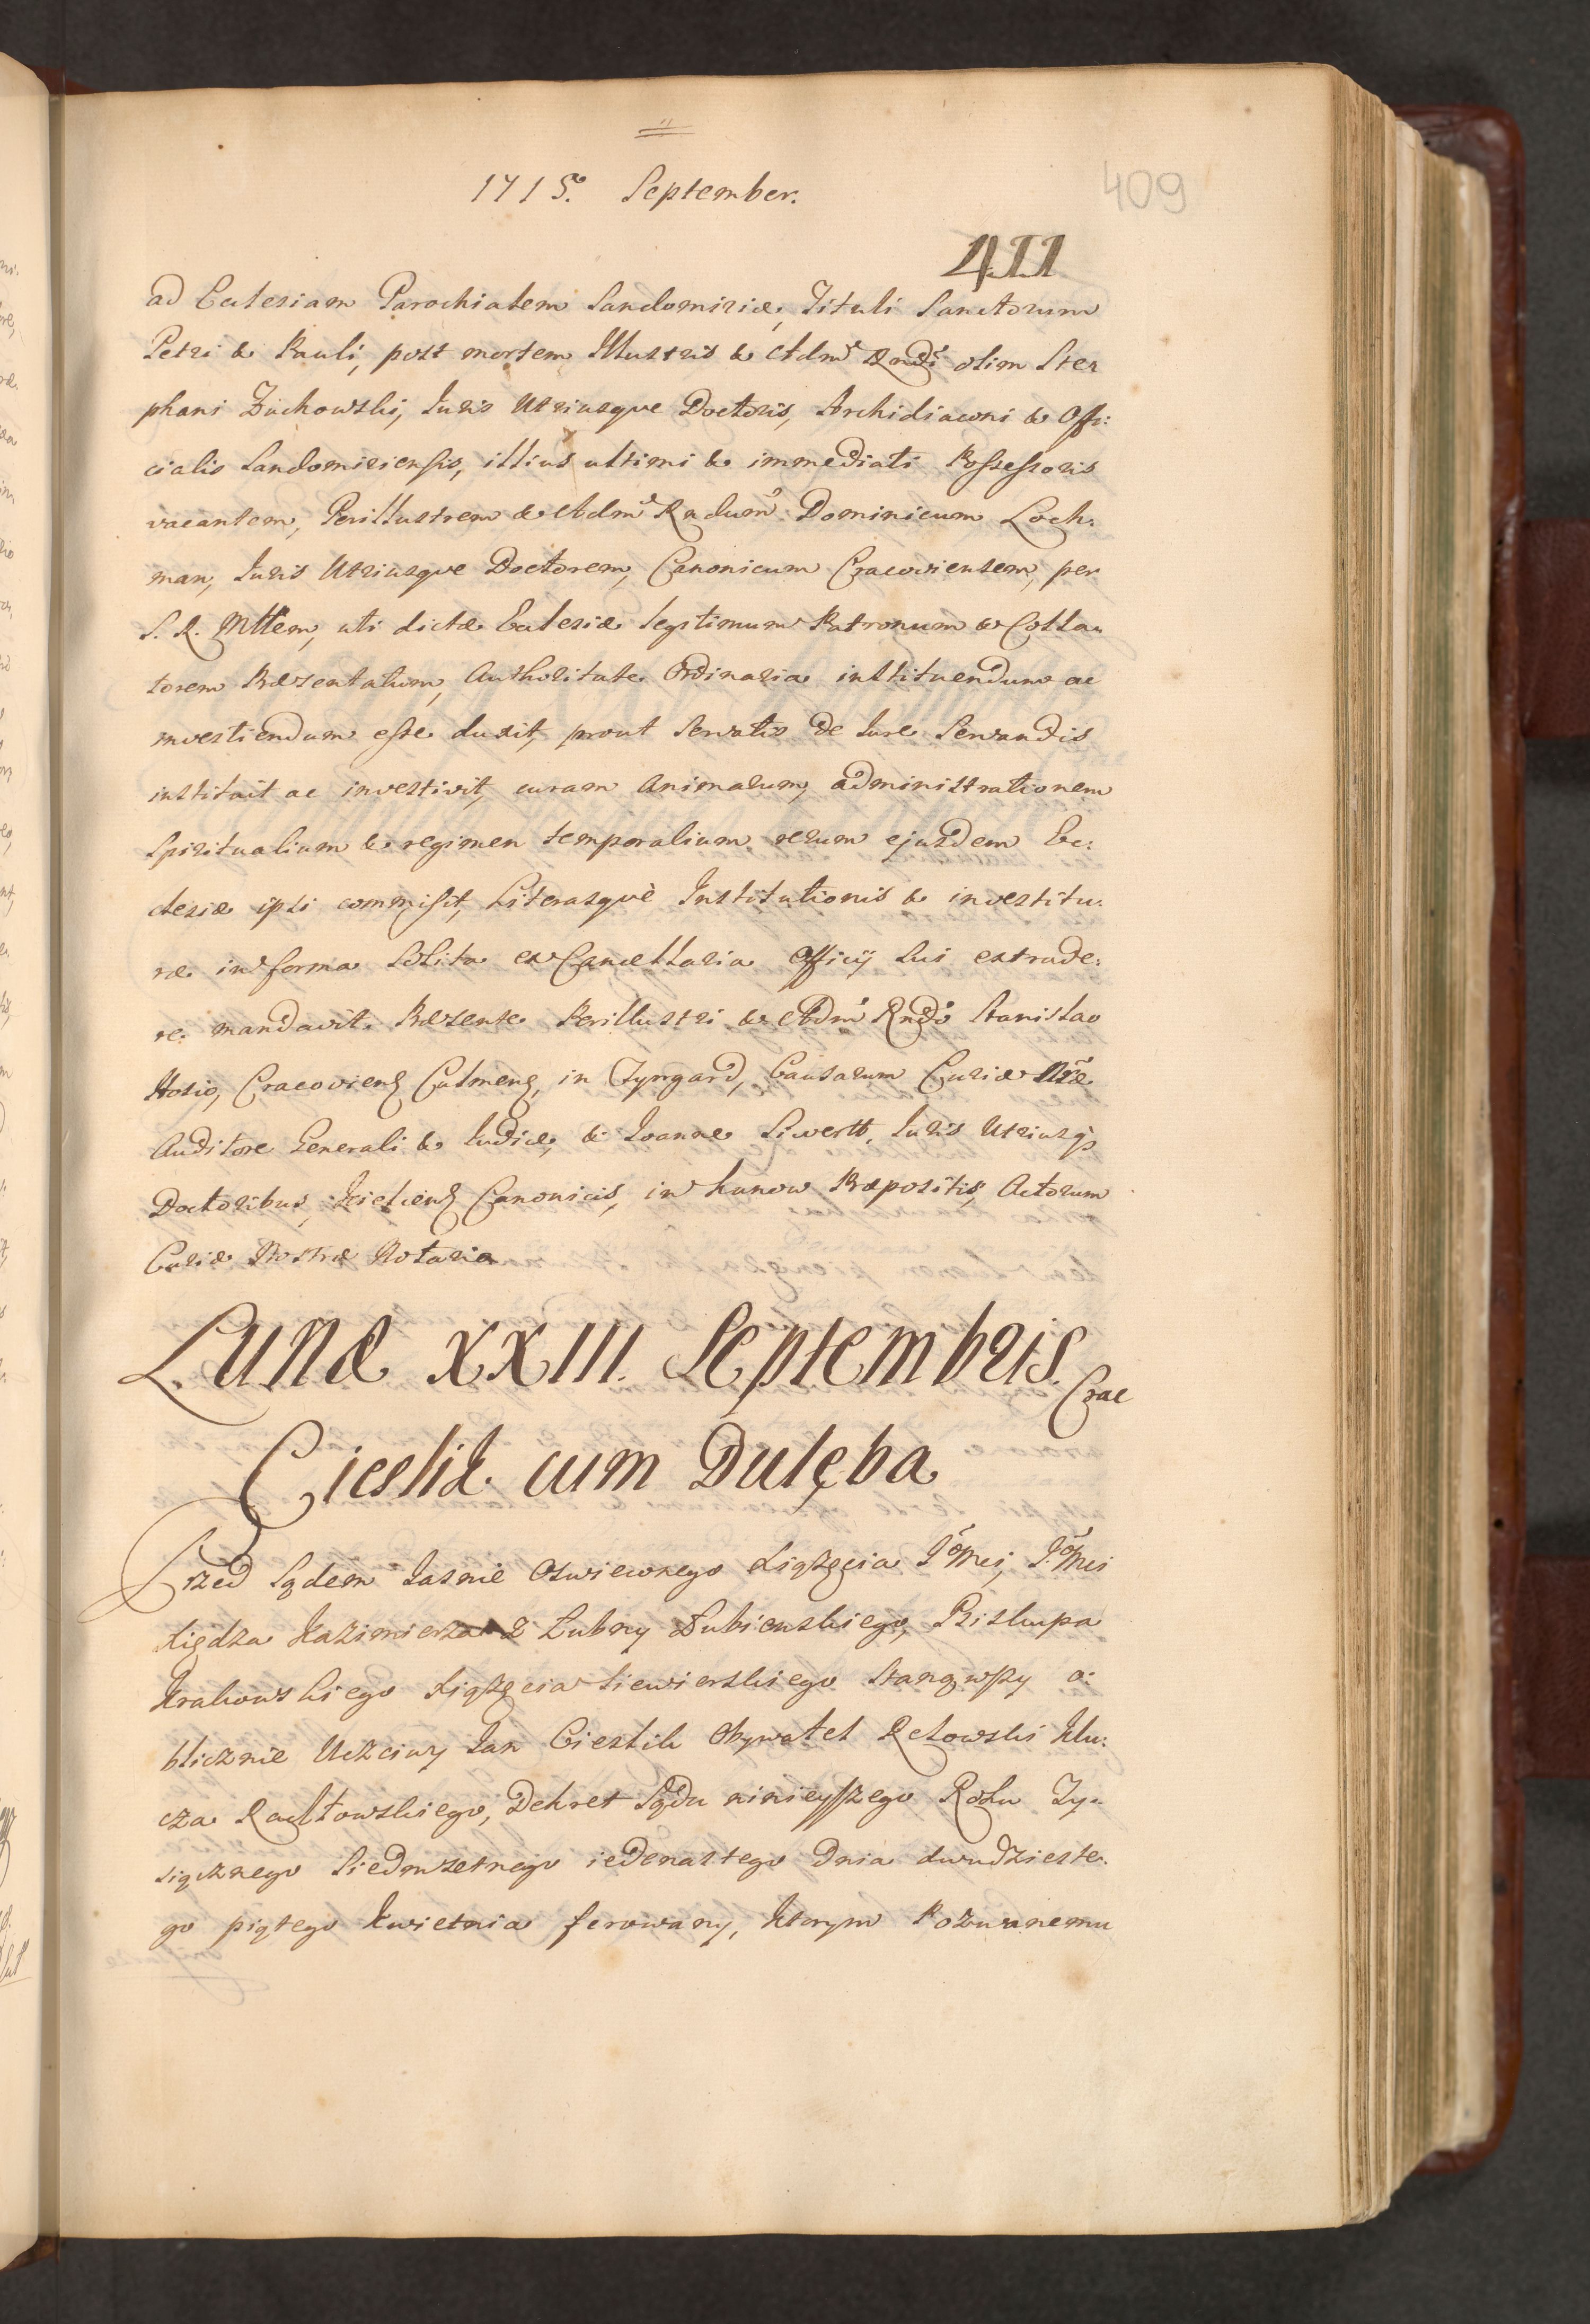 1715. September.
409
411
ad Ecclesiam Parochialem Sandomiriæ, Tituli Sanctorum
Petri & Pauli, post mortem Illustris & Adm Rndi olim Ste„
phani Zuchowski, Iuris Utriusque Doctoris, Archidiaconi & Offi:
cialis Sandomiriensis, illius ultimi & immediati Possessoris
vacantem, Perillustrem & Adm Rndum Dominicum Loch„
man, Iuris Utriusque Doctorem, Canonicum Cracoviensem, per
S. R. Mttem, uti dictæ Ecclesiæ legitimum Patronum & Colla„
torem Præsentatum, Authoritate Ordinaria instituendum ac
investiendum esse duxit, prout servatis de Iure Servandis
instituit ac investivit, curam Animarum, administrationem
Spiritualium & regimen temporalium rerum ejusdem Ec:
clesiæ ipsi commisit, Literasquè Institutionis & investitu„
ræ in forma solita ex Cancellaria Officij Sui extrade:
re mandavit. Præsente Perillustri & Adm Rndo Stanislao
Hosio, Cracovien Culmen, in Tyngard, Causarum Curiæ Nræ
Auditore Generali & Iudice, & Ioanne Siwertt, Iuris Utriusq
Doctoribus, Kielcien Canonicis, in Kunow Præpositis, Actorum
Curiæ Nostræ Notario
Lunæ XXIII. Septembris. Crac
Cieslik cum Dulęba
Przed Sądem Iasnie Oswieconego Xiążęcia Iomci, Iomci
Xiędza Kazimierza z Łubny Łubienskiego, Biskupa
Krakowskiego Xiążęcia Siewierskiego Stanąwszy o:
blicznie Uczciwy Ian Cieslik Obywatel Retowski Klu:
cza Radłowskiego, Dekret Sądu ninieyszego Roku Ty„
siącznego Siedmsetnego iedenastego Dnia dwudzieste„
go piątego Kwietnia ferowany, Ktorym Pozwanemu